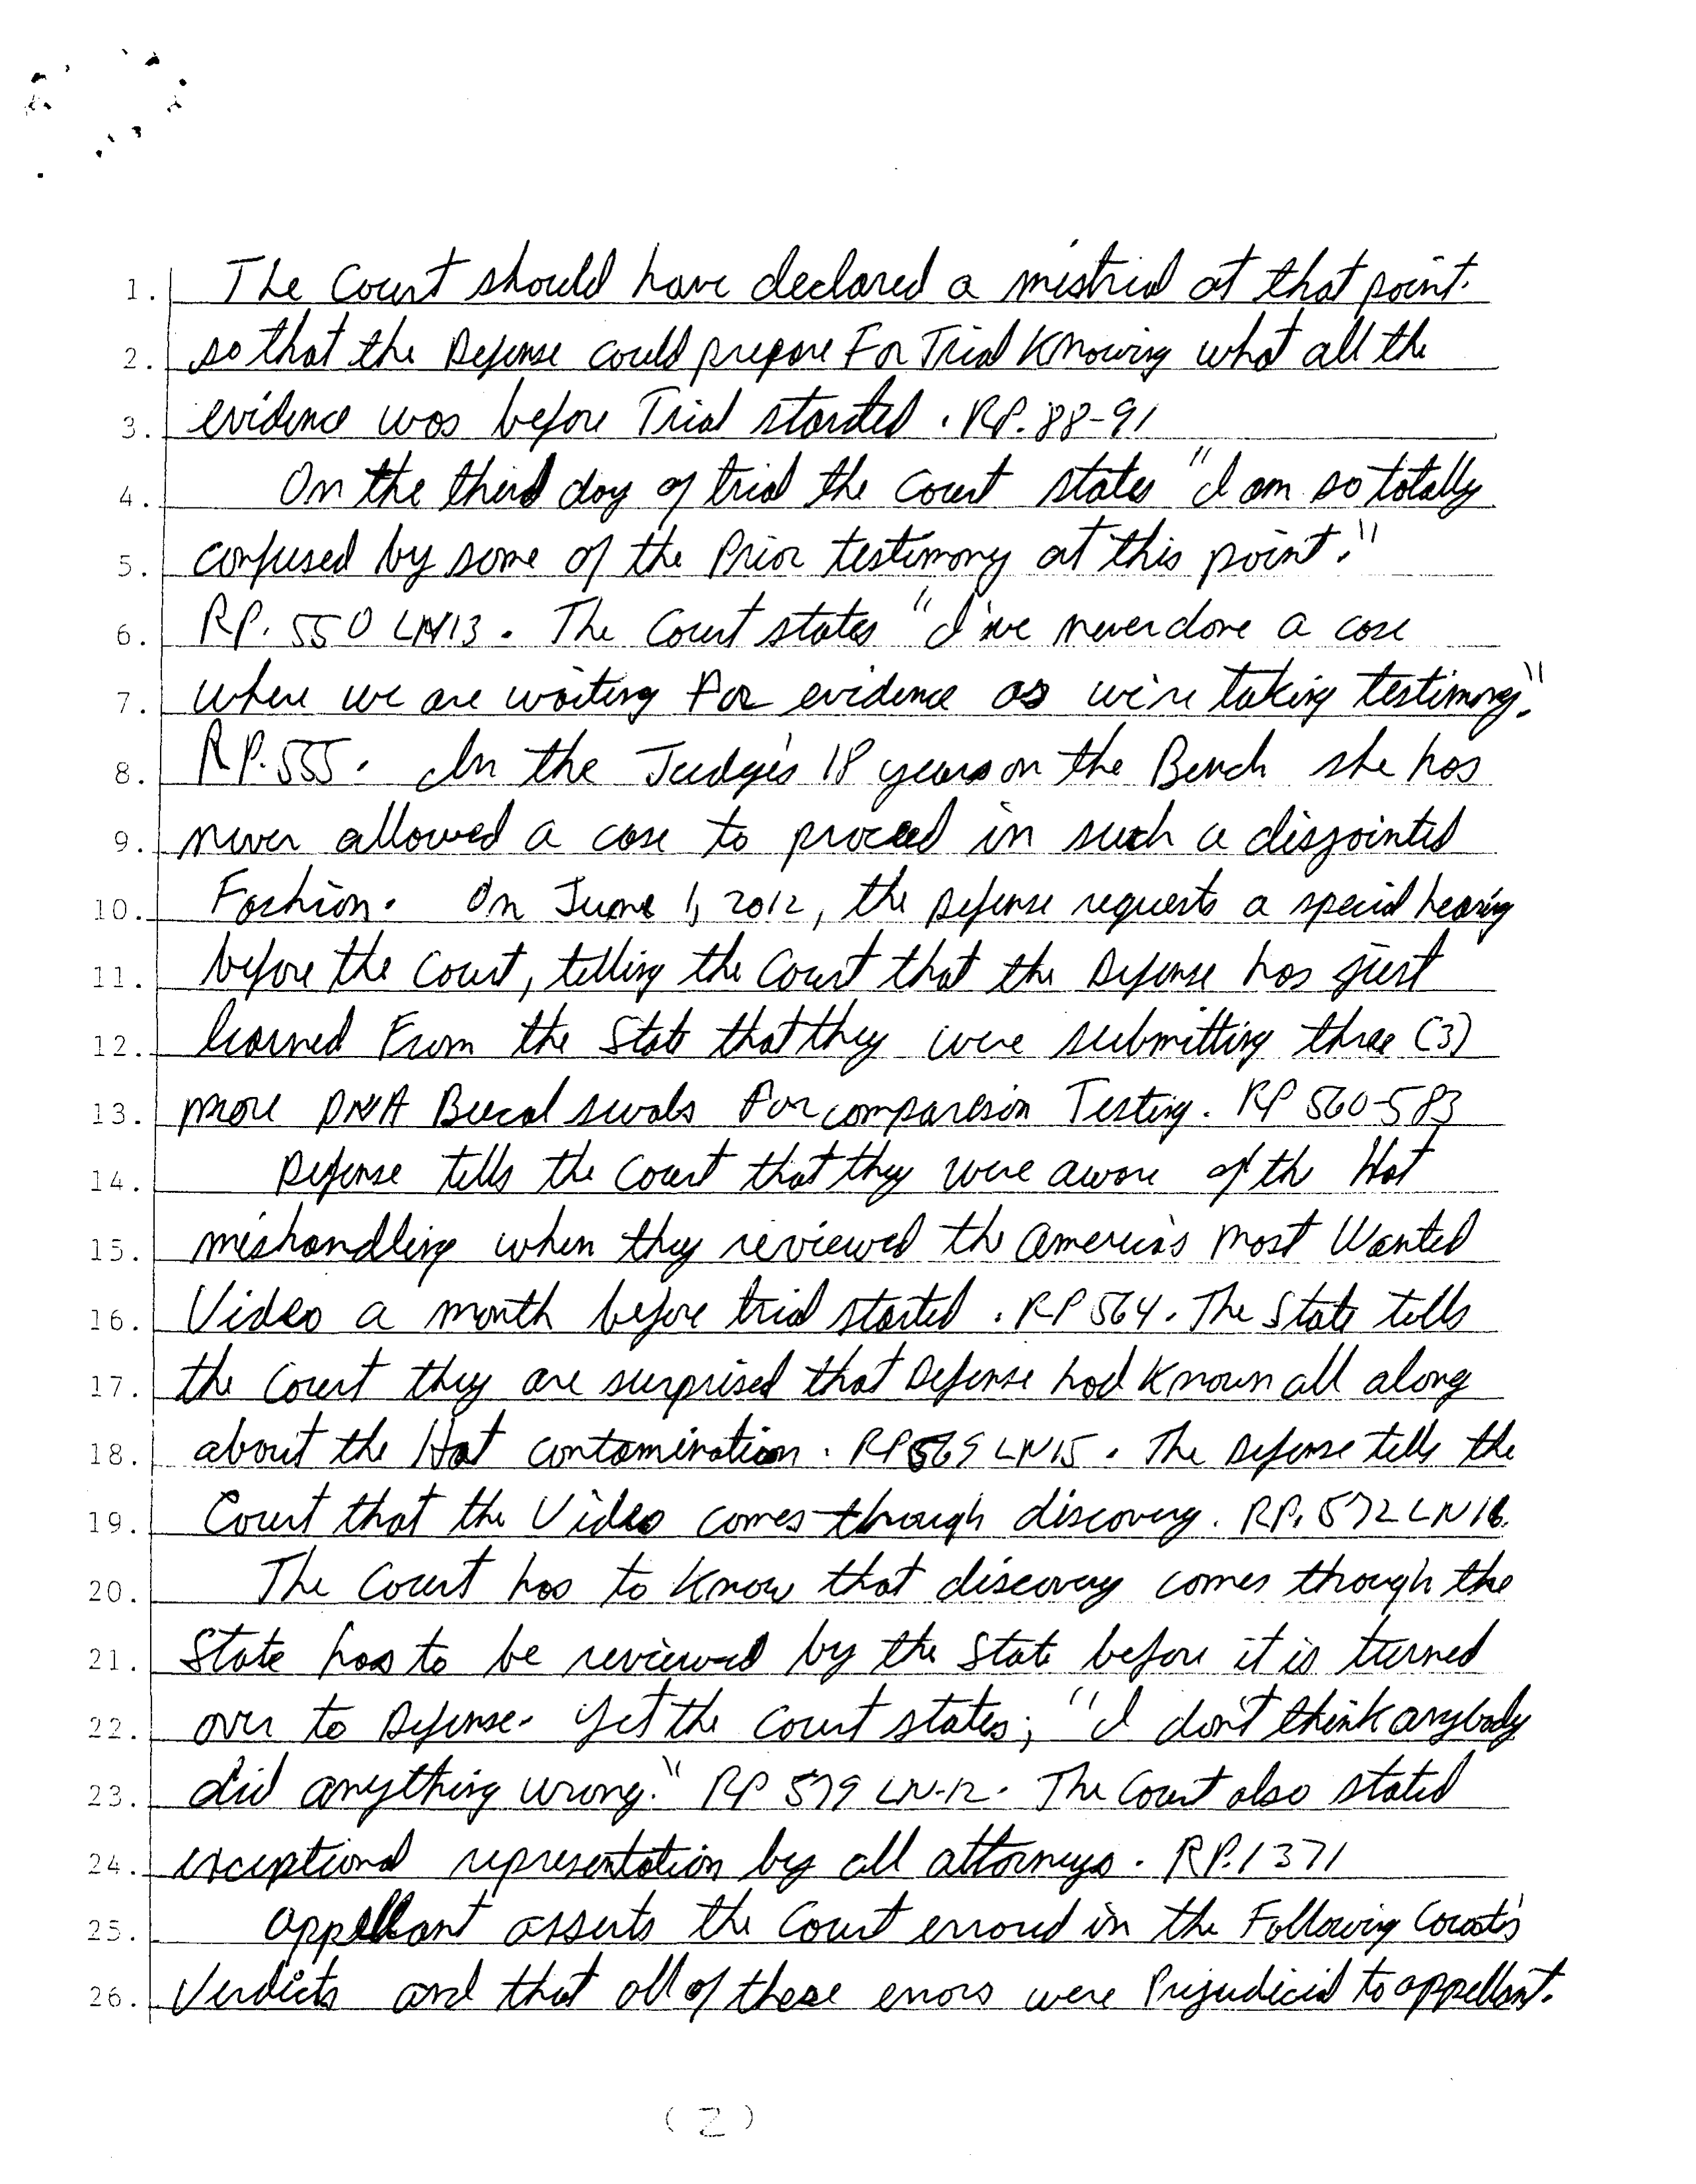 1. The Court should have declared a mistrial at that point.
2. so that the Defense could prepare For Trial Knowing what all the
3. evidence was before Trial started. RP. 88-91
4. On the third day of trial the Court states "I am so totally
5. confused by some of the Prior testimony at this point."
6. RP. 550 LN13. The Court states "I've never done a case
7. where we are waiting For evidence as we're taking testimony."
8. RP. 555. In the Judge's 18 years on the Bench she has
9. never allowed a case to proceed in such a disjointed
10. Fashion. On June 1, 2012, the Defense requests a special hearing
11. before the Court, telling the Court that the Defense has just
12. learned From the State that they were submitting three (3)
13. more DNA Buccal swabs For comparesion Testing. RP 560-583
14. Defense tells the Court that they were aware of th Hat
15. mishandling when they reviewed the America's most Wanted
16. Video a month before trial started. RP 564. The State tells
17. the Court they are surprised that Defense had Known all along
18. about the Hat contamination. RP 569 LN15. The Defense tells the
19. Court that the Video comes through discovery. RP. 572 LN 16.
20. The Court has to Know that discovery comes though the
21. State has to be reviewed by the State before it is turned
22. over to Defense. Yet the Court states; "I don't think anybody
23. did anything wrong." RP 579 LN-12. The Court also stated
24. exceptional representation by all attorneys. RP. 1371
25. appellant asserts the Court erroud in the Following Courts's
26. Verdicts and that all of these errors were Prejudicial to appellant.
(2)